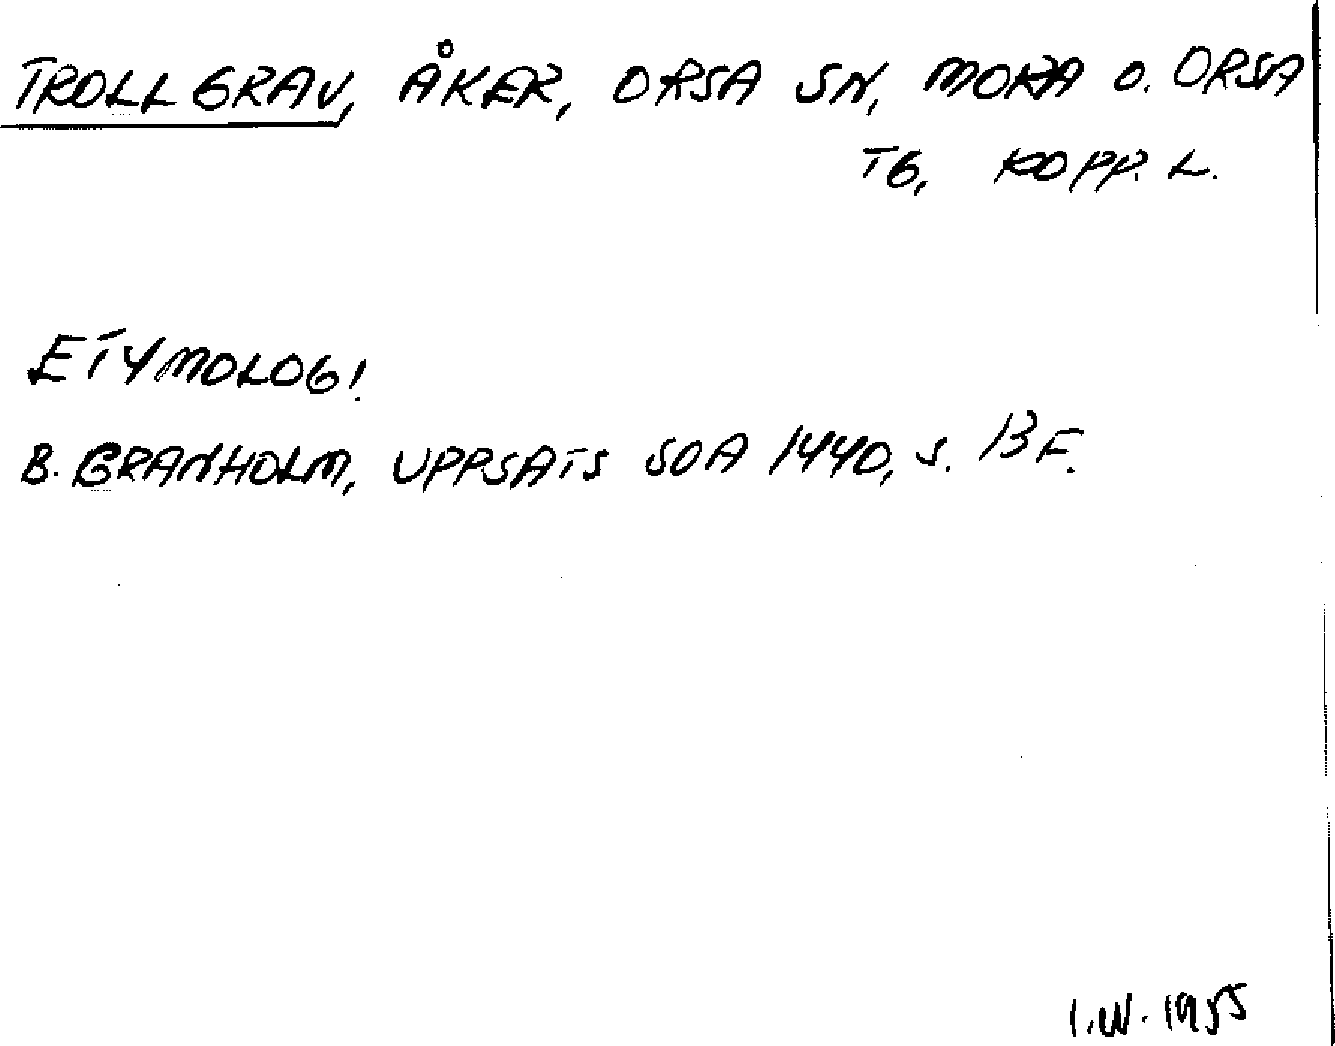 TROLLGRAV, ÅKER, ORSA SN, MORA O. ORSA
TG, KOPP. L.
ETYMOLOGI
B. GRANHOLM, UPPSATS SOA 1440, S. 13 F.
I.W. 1955